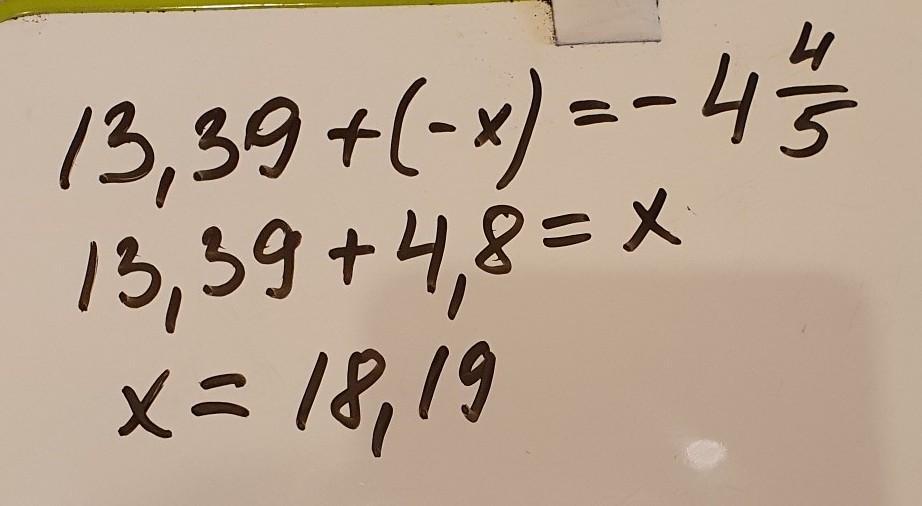 13,39 + (-x) = - 4 4/5
13,39 + 4,8 = x
x = 18,19